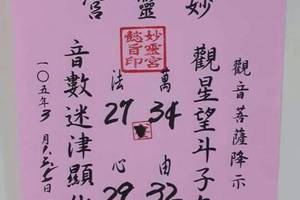 妙靈宮
觀音菩薩降示
觀星望斗子
萬 34 由 32
妙靈宮
懿旨印
法 27 心 29
音數迷津顯
一○五年3月
日